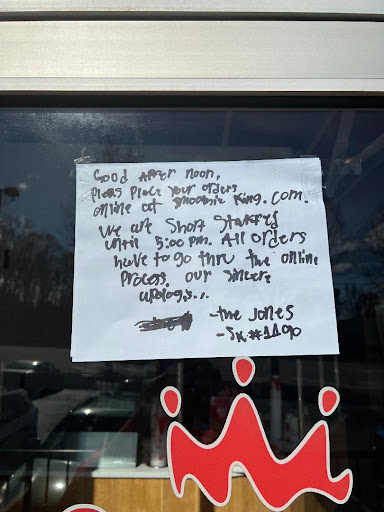 Good After noon,
pleas place your orders
online at smoothie king.com.
We are Short Staffed
until 5:00 pm. All orders
have to go thru the online
process. our sincere
apologis...
-the Jones
-SK#1190